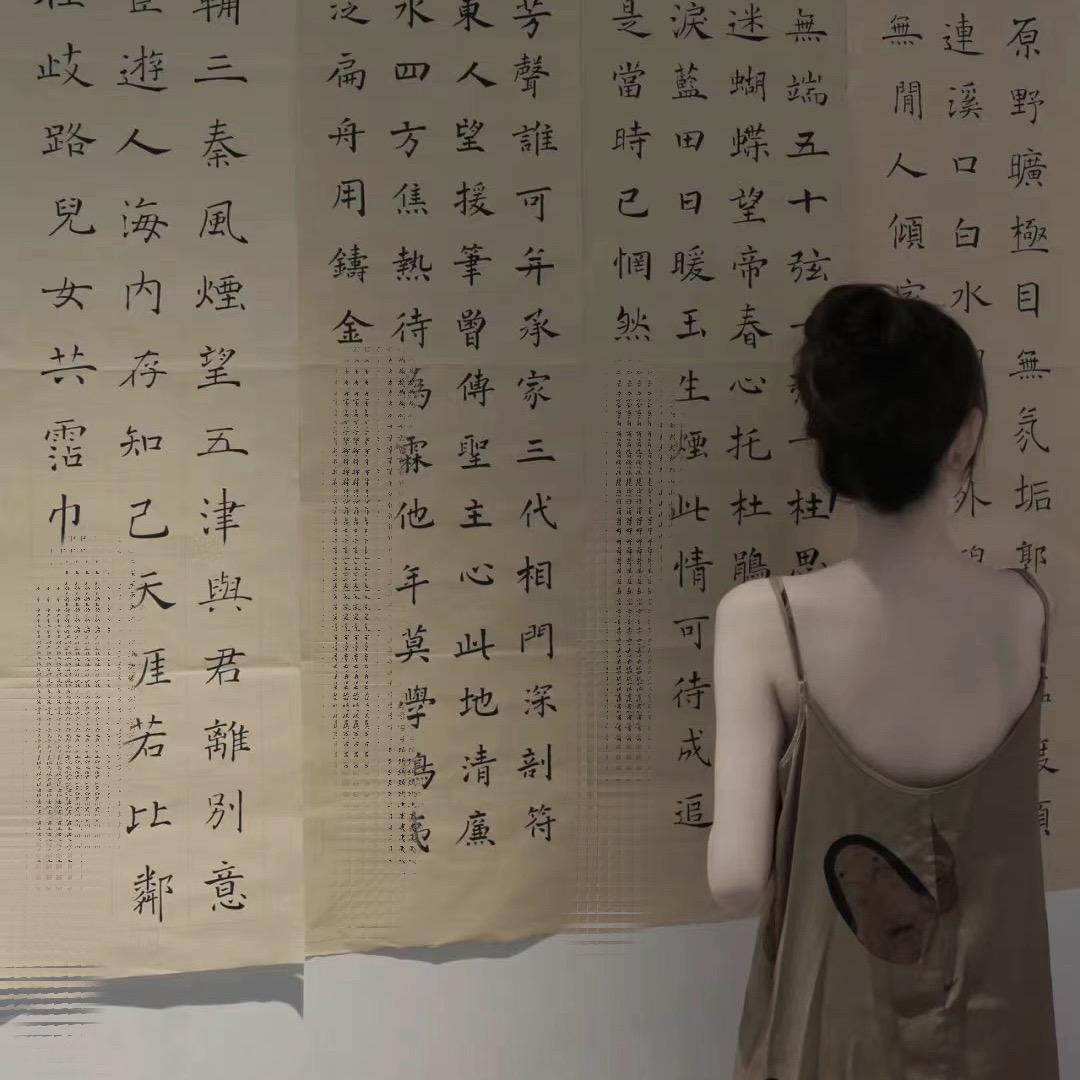 原野曠極目無氛垢郭
連溪口白水外
無閒人傾
無端五十弦柱思
迷蝴蝶望帝春心托杜鵑
淚藍田日暖玉生煙此情可待成追
是當時已惘然
芳聲誰可并承家三代相門深剖符
東人望援筆曾傳聖主心此地清廉
水四方焦熱待為霖他年莫學鴟夷
泛扁舟用鑄金
輔三秦風煙望五津與君離別意
遊人海內存知己天涯若比鄰
歧路兒女共霑巾